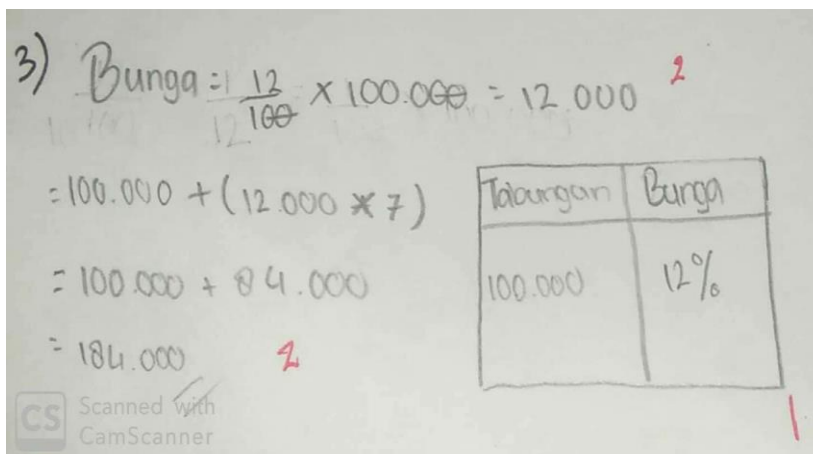 3) Bunga = 12/100 × 100.000 = 12.000 2
= 100.000 + (12.000 × 7)
= 100.000 + 84.000
= 184.000 2
Tabungan Bunga
100.000 12%
1
CS Scanned with
CamScanner